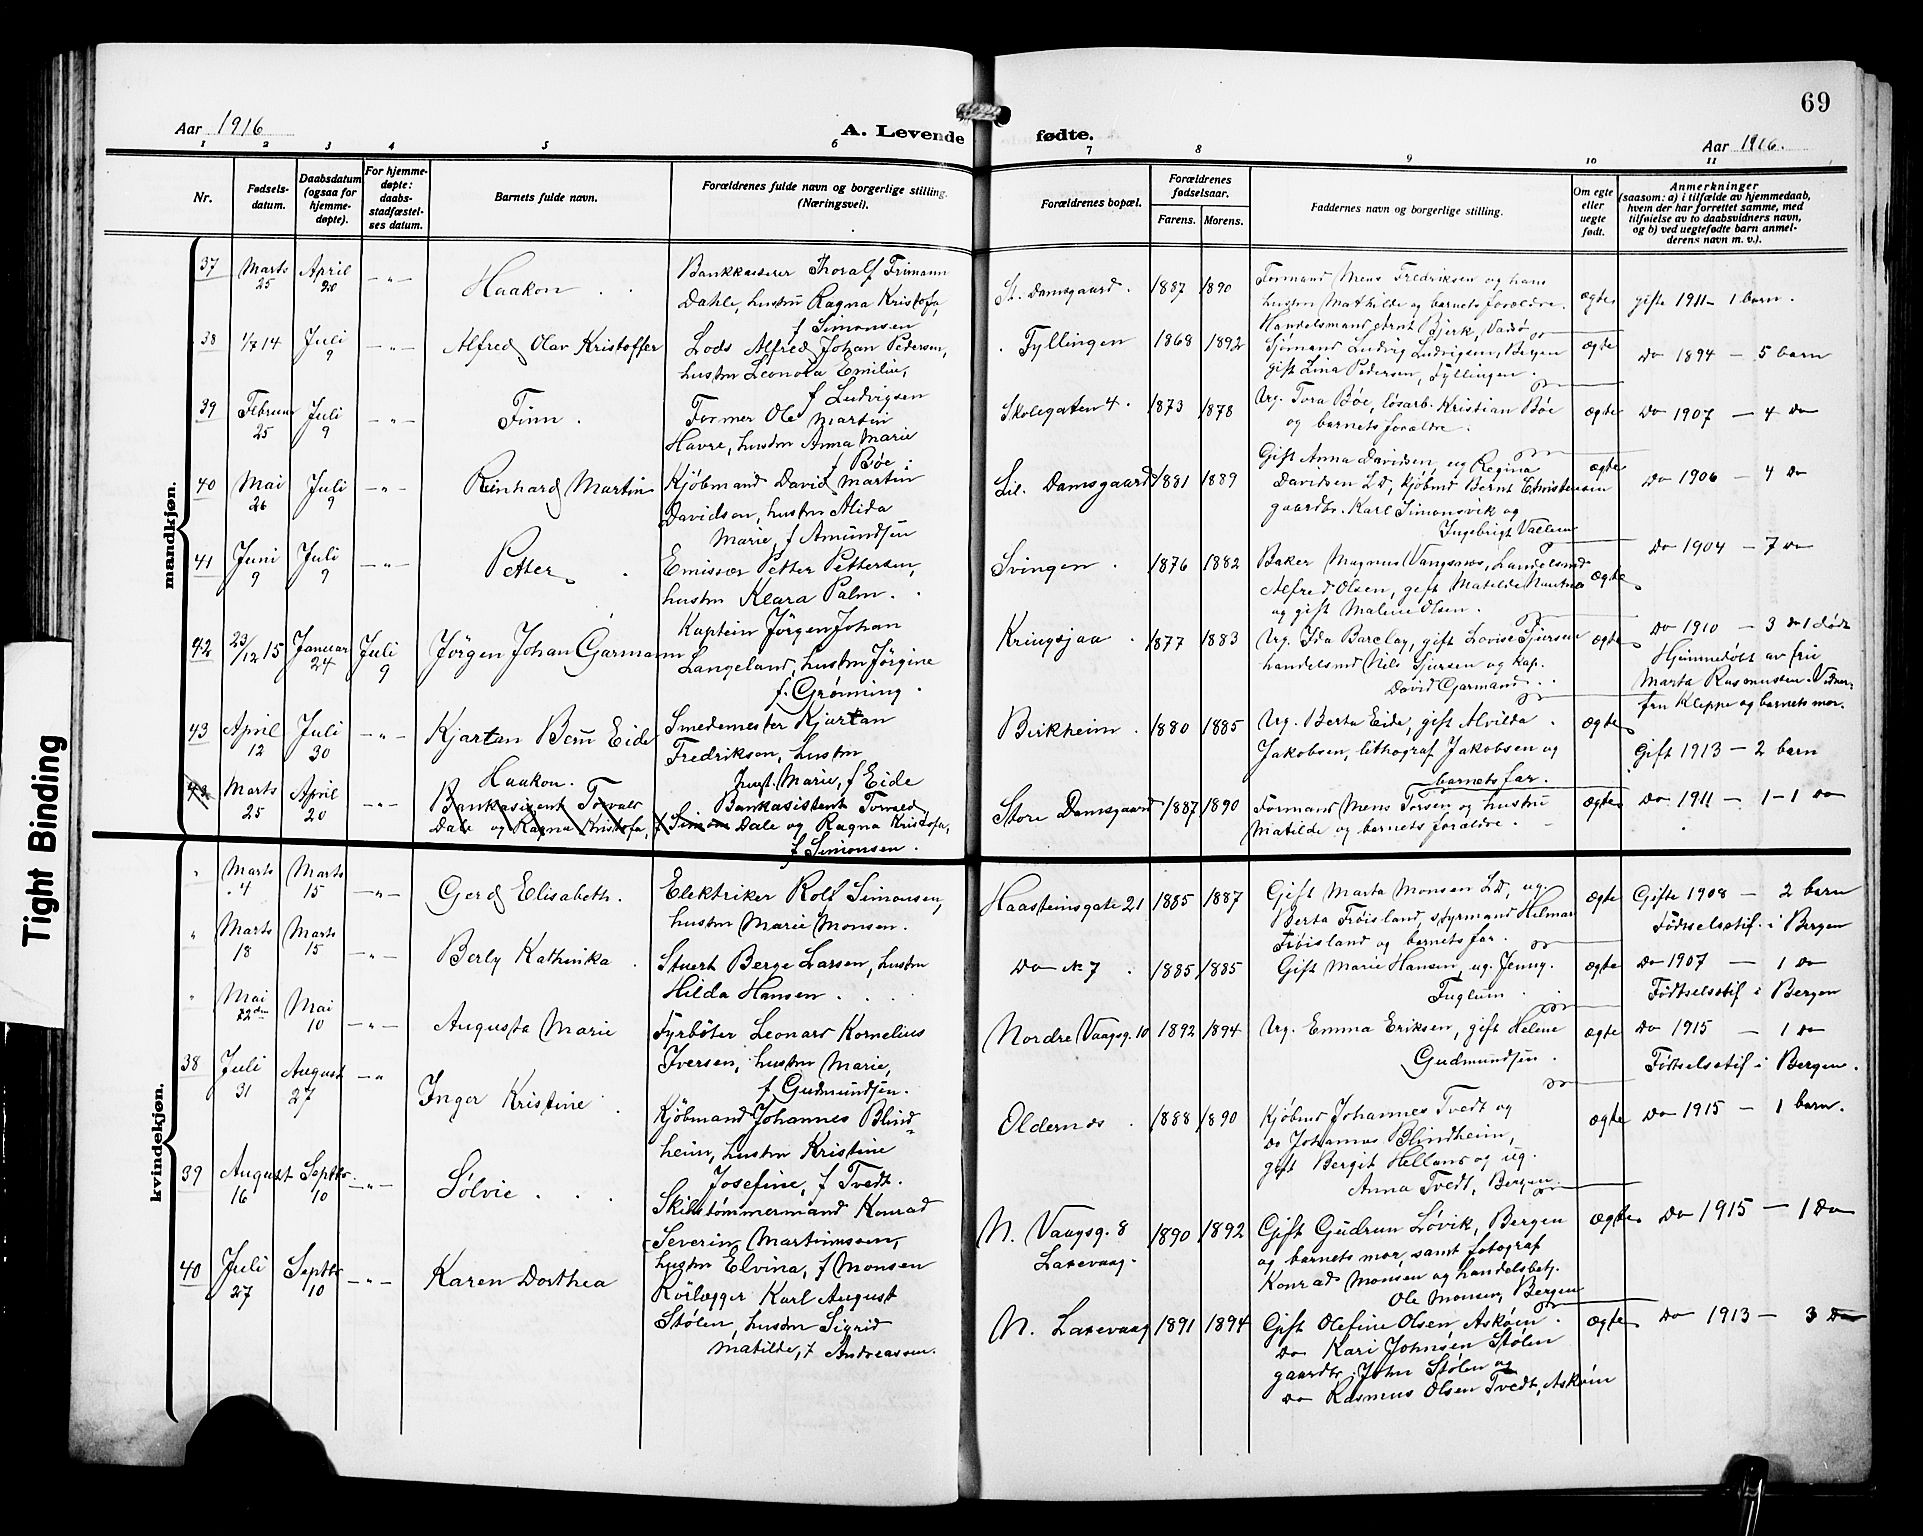 Aar 1916
A. Levende
fødte.
Aar 1916.
69
1 2 3 4 5 6 7 8 9 10 11
Nr.
Fødsels-
datum.
Daabsdatum
(ogsaa for
hjemme-
døpte).
For hjemme-
døpte:
daabs-
stadfæstel-
ses datum.
Barnets fulde navn.
Forældrenes fulde navn og borgerlige stilling.
(Næringsvei).
Forældrenes bopæl.
Forældrenes
fødselsaar.
Farens. Morens.
Faddernes navn og borgerlige stilling.
Om egte
eller
uegte
født.
Anmerkninger
(saasom: a) i tilfælde av hjemmedaab,
hvem der har forrettet samme, med
tilføielse av to daabsvidners navn,
og b) ved uegtefødte barn anmel-
derens navn m. v.).
mandkjøn.
37
Marts
25
April
20
-"-
Haakon
Bankkaserer Thoralf Frimann
Dahle, hustru Ragna Kristofa,
f Simonsen
St. Damsgaard.
1887 1890
Formand Mens Fredriksen og hans
hustru Mathilde og barnets forældre.
ægte
gifte 1911 - 1 barn.
38
1/7 14
Juli
9
-"-
Alfred Olav Kristoffer
Lods Alfred Johan Pedersen,
hustru Leonora Emilie,
f Ludvigsen
Fyllingen
1868 1892
Handelsmand Arnt Bjerk, Vadsø
Sjømand Ludvig Ludvigsen, Bergen
gift Lina Pedersen, Fyllingen
ægte
Do 1894 - 5 barn
39
Februar
25
Juli
9
-"-
Finn
Former Ole Martin
Havre, hustru Anna Marie
f Bøe
Skolegaten 4.
1873 1878
Ug. Tora Bøe, løsarb. Kristian Bøe
og barnets forældre.
ægte
Do 1907 - 4 Do
40
Mai
26
Juli
9
-"-
Reinhard Martin
Kjøbmand David Martin
Davidsen, hustru Alida
Marie, f Amundsen
Lil. Damsgaard
1881 1889
Gift Anna Davidsen, ug Regina
Davidsen LD, kjøbmd Bernt Christensen
gaardbr. Karl Simonsvik og
Ingebrigt Vallem
ægte
Do 1906 - 4 Do
41
Juni
9
Juli
9
-"-
Petter
Emissær Petter Pettersen,
hustru Klara Palm.
Svingen
1876 1882
Baker Magnus Vangsnes, Handelsmd
Alfred Olsen, gift Matilde
og gift Malene Olsen.
ægte
Do 1904 - 7 Do
42
23/12 15
Januar
24
Juli
9
Jörgen Johan Garmann
Kaptein Jörgen Johan
Langeland, hustru Jörgine
f. Grønning.
Kringsjaa
1877 1883
Ug. Ida Barclay, gift Lovise Sjursen
handelsmd Nils Sjursen og kap.
David Garmand
ægte
Do 1910 - 3 Do 1 død
Hjemmedöbt av fru
Marta Rasmussen. Vidner
fru Kleppe og barnets mor.
43
April
12
Juli
30
-"-
Kjartan Bernt Eide
Smedemester Kjartan
Fredriksen, hustru
Marie, f Eide
Birkheim
1880 1885
Ug. Berta Eide, gift Alvilda
Jakobsen, lithograf Jakobsen og
barnets far.
ægte
Gift 1913 - 2 barn
42
Marts
25
April
20
-"-
Haakon.
Bankasistent Torvald
Dale og Ragna Kristofa, f Simon
Bankasistent Torvald
Dale og Ragna Kristofa,
f Simonsen.
Store Damsgaard
1887 1890
Formand Mens Torsen og hustru
Matilde og barnets forældre.
ægte
Do 1911 - 1-1 Do
kvindekjøn.
"
Marts
4
Marts
15
-"-
Gerd Elisabeth.
Elektriker Rolf Simonsen,
hustru Marie Monsen.
Haasteinsgate 21
1885 1887
Gift Marta Monsen LD, ug.
Berta Frøisland, styrmand Hilmar
Frøisland og barnets far.
ægte
Gifte 1908 - 2 barn
Födselsstif. i Bergen
"
Marts
18
Marts
15
-"-
Berly Kathinka
Stuert Berge Larsen, hustru
Hilda Hansen
Do No 7
1885 1885
Gift Marie Hansen, ug. Jenny
Fuglum
ægte
Do 1907 - 1 Do
Födselsstif. i Bergen
"
Mai
Mai
10
-"-
Augusta Marie
Fyrbøter Leonard Kornelius
Iversen, hustru Marie,
f Gudmundsen.
Nordre Vaagsg. 10
1892 1894
Ug. Emma Eriksen, gift Helene
Gudmundsen.
ægte
Do 1915 - 1 Do
Födselsstif i Bergen.
38
Juli
31
August
27
-"-
Inger Kristine
Kjöbmand Johannes Blind-
heim, hustru Kristine
Josefine, f Tvedt.
Oldernes
1888 1890
Kjøbmd Johannes Tvedt og
Do Johannes Blindheim,
gift Bergit Helland og ug.
Anna Tvedt, Bergen
ægte
Do 1915 - 1 barn.
39
August
16
Septbr.
10
-"-
Sølvie
Skibstømmermand Konrad
Severin Martinussen,
hustru Elvina, f Monsen
N. Vaagsg. 8
Laxevaag.
1890 1892
Gift Gudrun Løvik, Bergen
og barnets mor, samt fotograf
Konrad Monsen og handelsbetj.
Ole Monsen, Bergen
ægte
Do 1915 - 1 Do
40
Juli
27
Septbr
10
-"-
Karen Dorthea
Rörlægger Karl August
Stølen, hustru Sigrid
Matilde, f Andreassen.
N. Laxevaag
1891 1894
Gift Olefine Olsen Askøen.
Do Kari Johnsen Stølen
gaardbr. John Stølen og
Do Rasmus Olsen Tvedt, Askøen
ægte
Do 1913 - 3 Do
Tight Binding